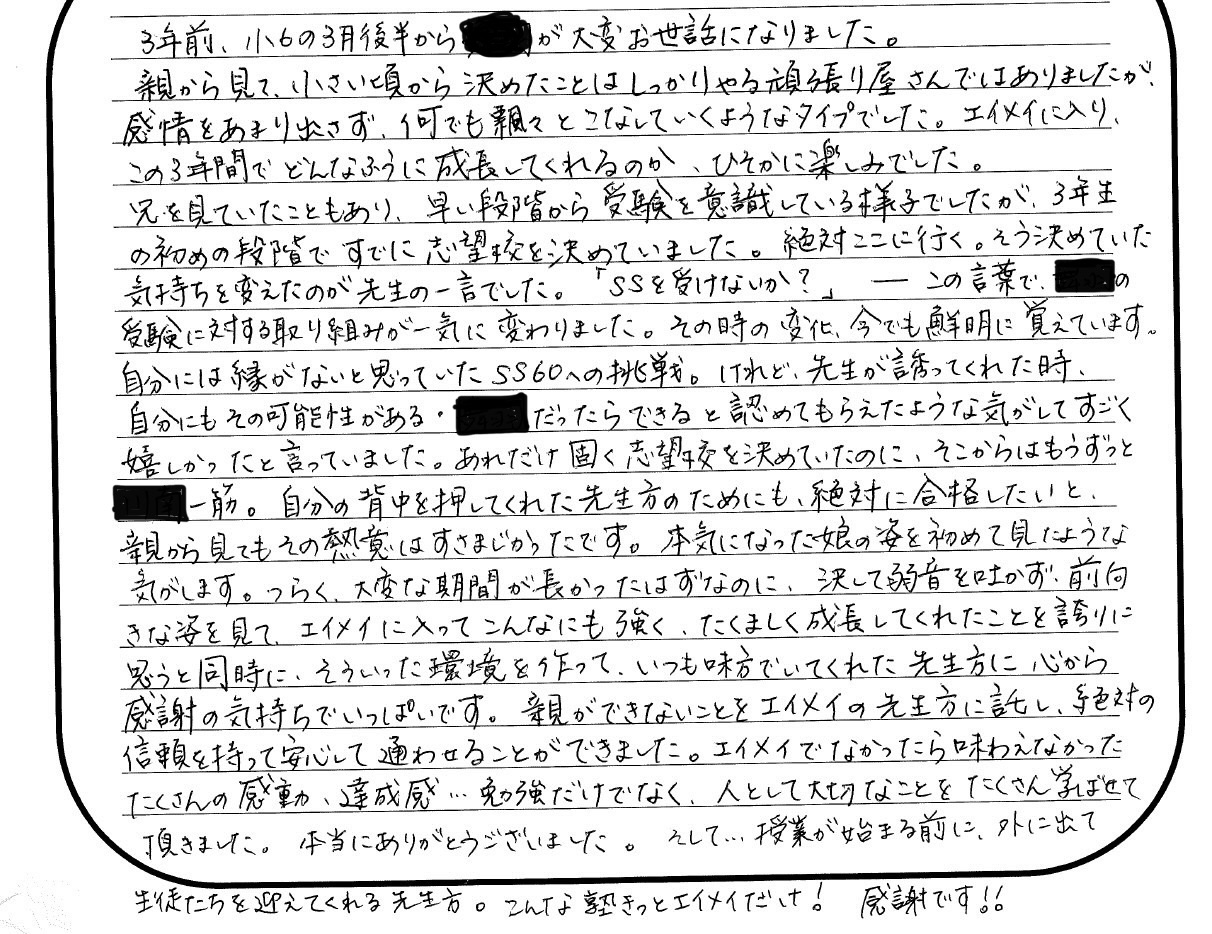 3年前、小6の3月後半から が大変お世話になりました。
親から見て、小さい頃から決めたことはしっかりやる頑張り屋さんではありましたが、
感情をあまり出さず、何でも飄々とこなしていくようなタイプでした。エイメイに入り、
この3年間でどんなふうに成長してくれるのか、ひそかに楽しみでした。
兄を見ていたこともあり、早い段階から受験を意識している様子でしたが、3年生
の初めの段階ですでに志望校を決めていました。絶対ここに行く。そう決めていた
気持ちを変えたのが先生の一言でした。「SSを受けないか?」 ― この言葉で、 の
受験に対する取り組みが一気に変わりました。その時の変化、今でも鮮明に覚えています。
自分には縁がないと思っていたSS60への挑戦。けれど、先生が誘ってくれた時、
自分にもその可能性がある・ だったらできると認めてもらえたような気がしてすごく
嬉しかったと言っていました。あれだけ固く志望校を決めていたのに、そこからはもうずっと
一筋。自分の背中を押してくれた先生方のためにも、絶対に合格したいと、
親から見てもその熱意はすさまじかったです。本気になった娘の姿を初めて見たような
気がします。つらく、大変な期間が長かったはずなのに、決して弱音を吐かず、前向
きな姿を見て、エイメイに入ってこんなにも強く、たくましく成長してくれたことを誇りに
思うと同時に、そういった環境を作って、いつも味方でいてくれた先生方に心から
感謝の気持ちでいっぱいです。親ができないことをエイメイの先生方に託し、絶対の
信頼を持って安心して通わせることができました。エイメイでなかったら味わえなかった
たくさんの感動、達成感…勉強だけでなく、人として大切なことをたくさん学ばせて
頂きました。本当にありがとうございました。そして…授業が始まる前に、外に出て
生徒たちを迎えてくれる先生方。こんな塾きっとエイメイだけ! 感謝です!!